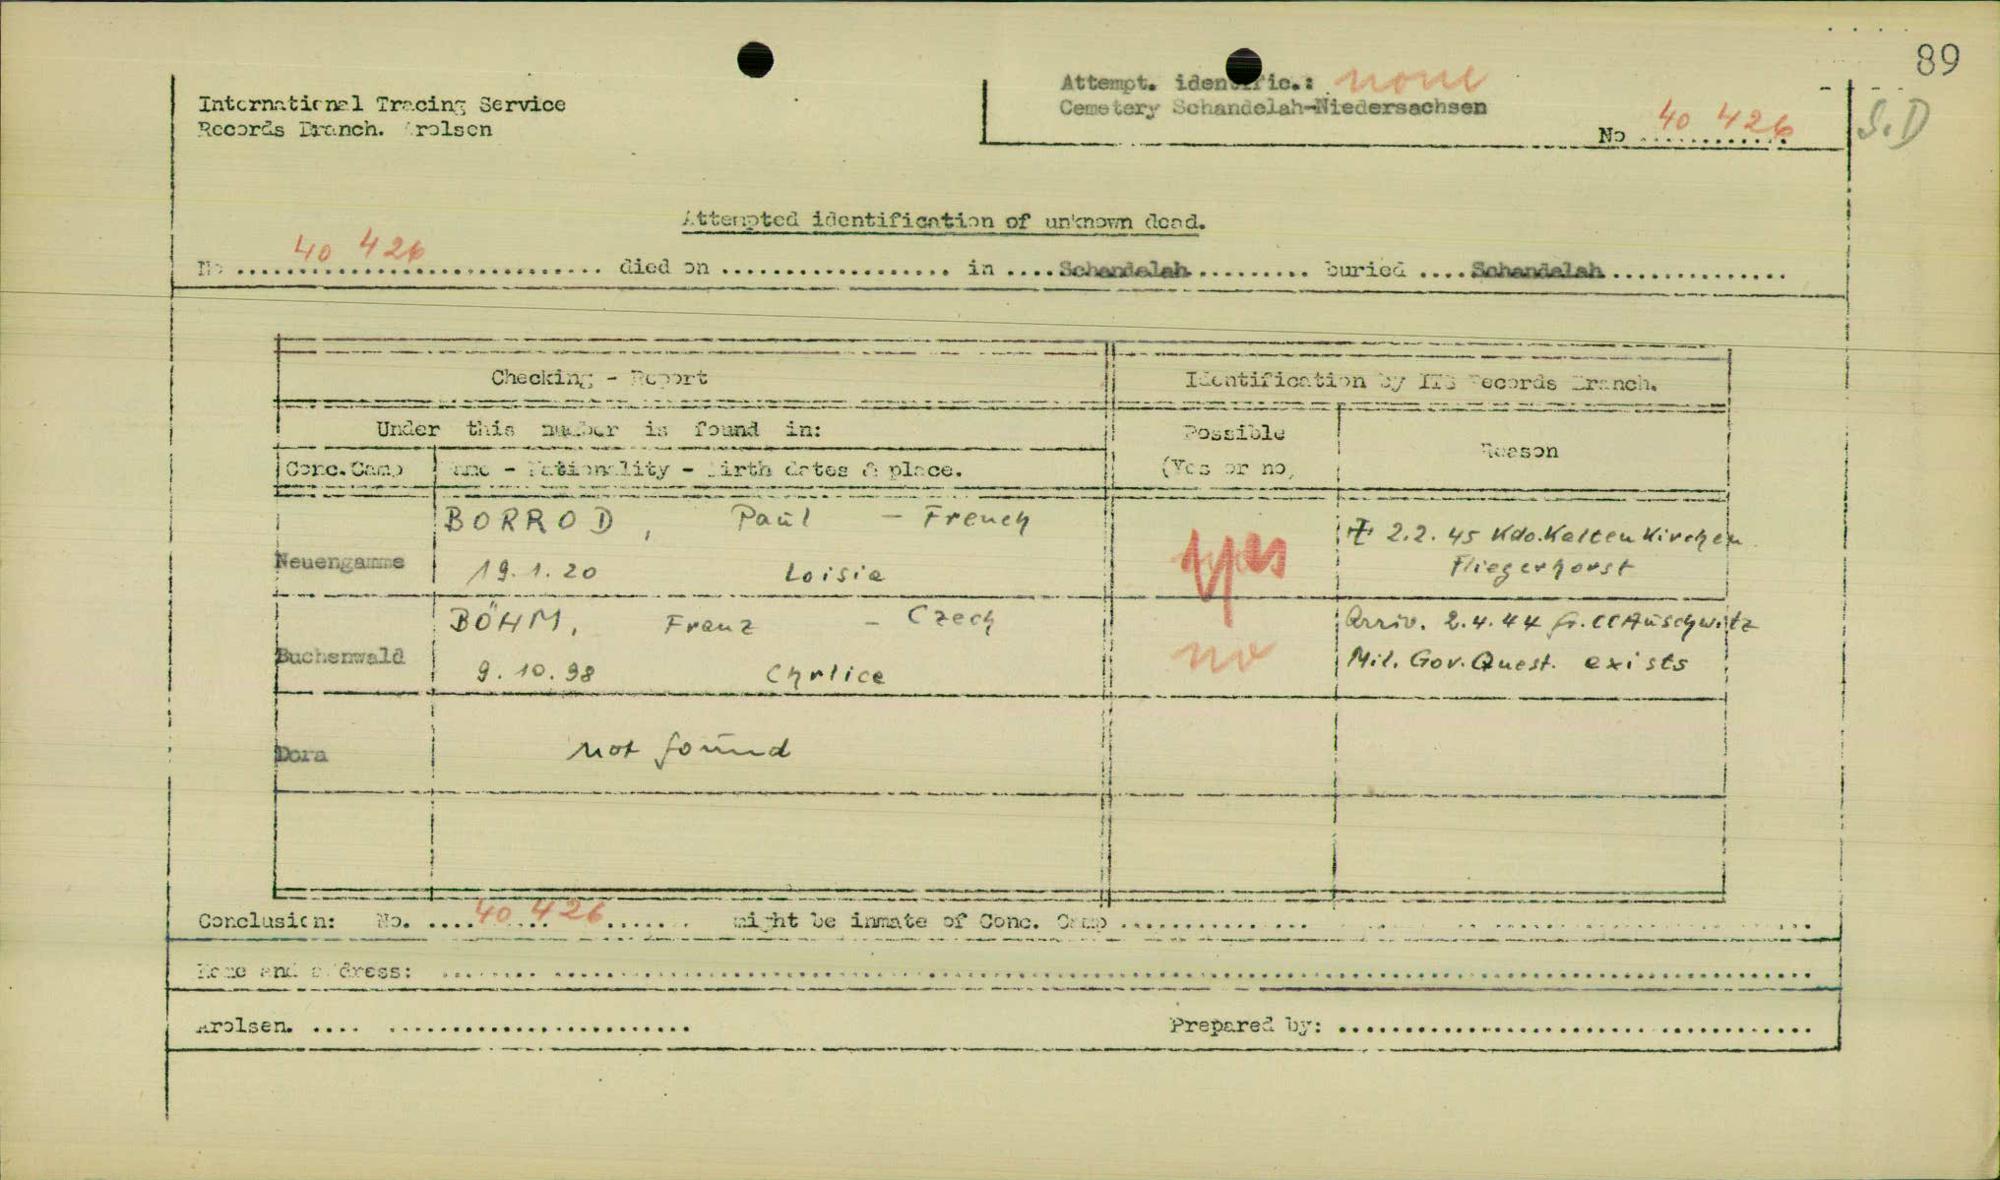 89
International Tracing Service
Records Branch. Arolsen
Attempt. identific.: none
Cemetery Schandelah-Niedersachsen
No 40 426
S.D
Attempted identification of unknown dead.
No 40 426 died on .................. in ....Schandelah.......... buried ....Schandelah..............
Checking - Report
Identification by ITS Records Branch.
Under this number is found in:
Possible
(Yes or no)
Reason
Conc.Camp
Name - Nationality - Birth dates & place.
Neuengamme
BORROD, Paul - French
19.1.20 Loisia
yes
2.2.45 Kdo. Kaltenkirchen
Fliegerhorst
Buchenwald
BÖHM, Franz - Czech
9.10.98 Chrlice
no
Arriv. 2.4.44 fr. CC Auschwitz
Mil. Gov. Quest. exists
Dora
not found
Conclusion: No. ....40 426....... might be inmate of Conc. Camp ...............
Name and address: ........
Arolsen. .... ........................
Prepared by: .....................................